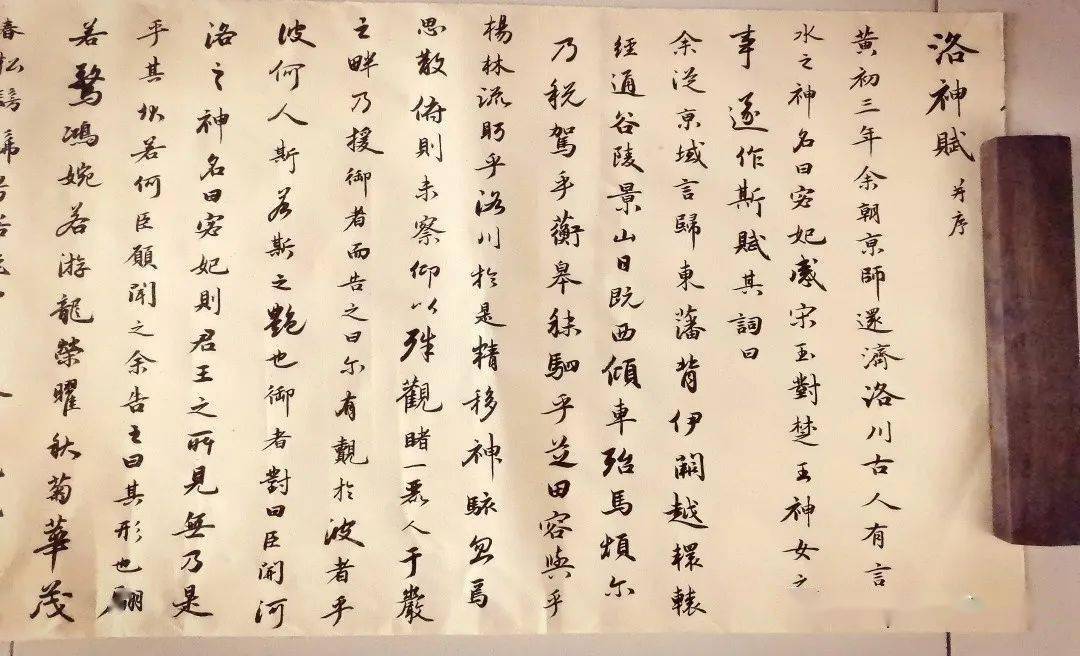 洛神賦 并序
黃初三年余朝京師還濟洛川古人有言
水之神名曰宓妃感宋玉對楚王神女之
事遂作斯賦其詞曰
余從京域言歸東藩背伊闕越轘轅
經通谷陵景山日既西傾車殆馬煩尔
乃稅駕乎蘅皋秣駟乎芝田容與乎
楊林流眄乎洛川於是精移神駭忽焉
思散俯則未察仰以殊觀睹一麗人于巖
之畔乃援御者而告之曰尔有覿於彼者乎
彼何人斯若斯之艷也御者對曰臣聞河
洛之神名曰宓妃則君王之所見無乃是
乎其状若何臣願聞之余告之曰其形也翩
若驚鴻婉若游龍榮曜秋菊華茂
春松